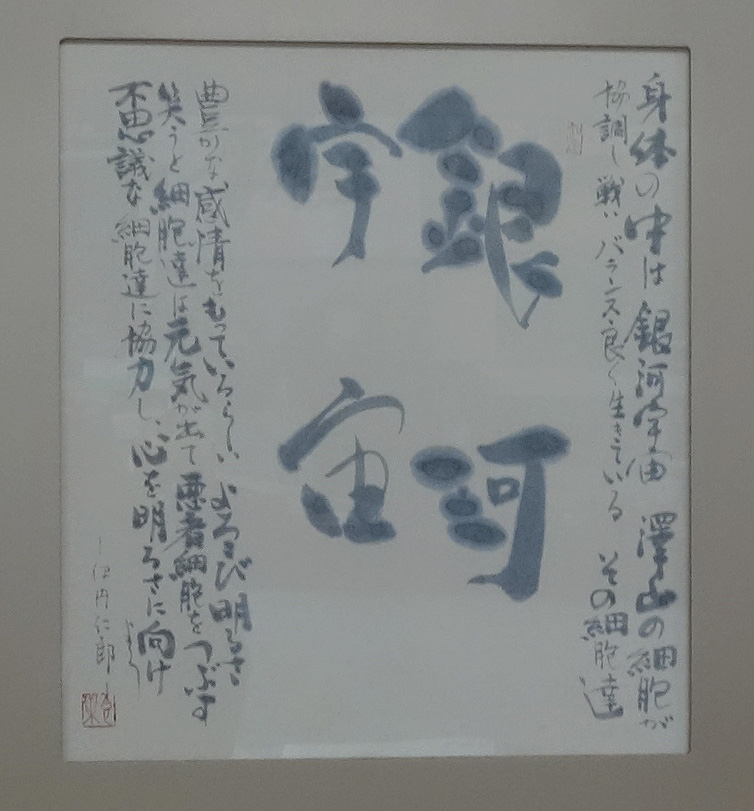 身体の中は銀河宇宙 澤山の細胞が
協調し戦いバランス良く生きている その細胞達
銀河
宇宙
豊かな感情をもっているらしい よろこび明るさ
笑うと細胞達は元気が出て悪者細胞をつぶす
不思議な細胞達に協力し、心を明るさに向け
よう
伊丹仁郎